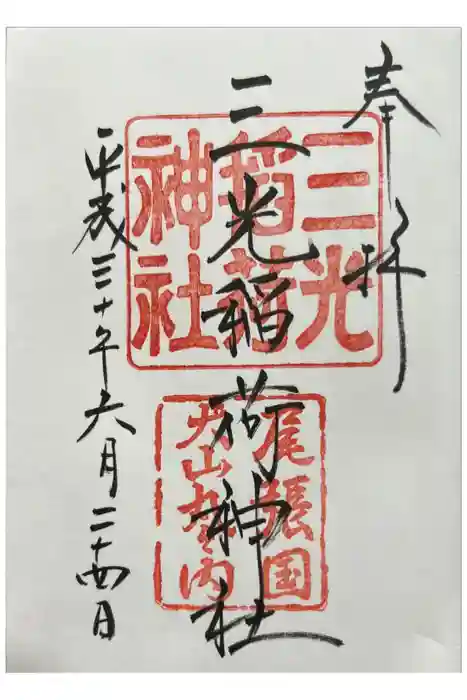 奉拝
三光稲荷神社
平成三十年六月二十四日
三光
稲荷
神社
尾張国
犬山